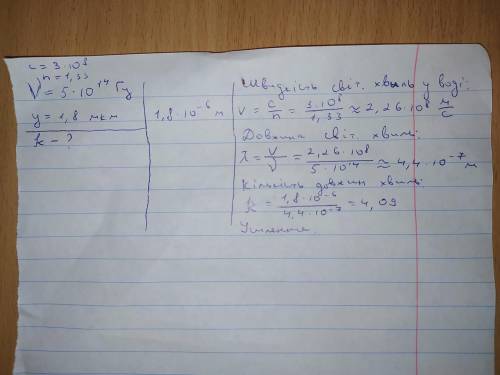 c = 3·10⁸
n = 1,33
ν = 5·10¹⁴ Гц
y = 1,8 мкм
k - ?
1,8·10⁻⁶ м
Швидкість світ. хвиль у воді:
v = c/n = 3·10⁸/1,33 ≈ 2,26·10⁸ м/с
Довжина світ. хвилі:
λ = v/ν = 2,26·10⁸/5·10¹⁴ ≈ 4,4·10⁻⁷ м
Кількість довжин хвиль:
k = 1,8·10⁻⁶/4,4·10⁻⁷ = 4,09